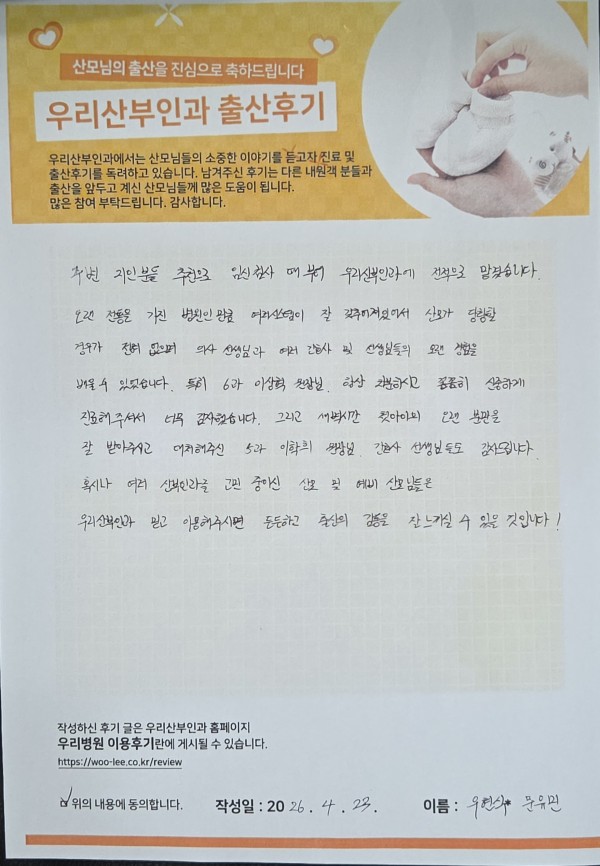 산모님의 출산을 진심으로 축하드립니다
우리산부인과 출산후기
우리산부인과에서는 산모님들의 소중한 이야기를 듣고자 진료 및
출산후기를 독려하고 있습니다. 남겨주신 후기는 다른 내원객 분들과
출산을 앞두고 계신 산모님들께 많은 도움이 됩니다.
많은 참여 부탁드립니다. 감사합니다.
주변 지인분들 추천으로 임신검사 때부터 우리산부인과에 전적으로 맡겼습니다.
오랜 전통을 가진 병원인만큼 여러시스템이 잘 갖추어져있어서 산모가 당황할
경우가 전혀 없으며 의사 선생님과 여러 간호사 및 선생님들의 오랜 경험을
배울 수 있었습니다. 특히 6과 이상혁 원장님. 항상 차분하시고 꼼꼼히 신중하게
진료해주셔서 너무 감사했습니다. 그리고 새벽시간 첫아이의 오랜 분만을
잘 받아주시고 대처해주신 5과 이학희 원장님. 간호사 선생님들도 감사드립니다.
혹시나 여러 산부인과를 고민 중이신 산모 및 예비 산모님들은
우리산부인과 믿고 이용해주시면 든든하고 출산의 감동을 잘 느끼실 수 있을 것입니다!
작성하신 후기 글은 우리산부인과 홈페이지
우리병원 이용후기란에 게시될 수 있습니다.
https://woo-lee.co.kr/review
위의 내용에 동의합니다. 작성일 : 2026. 4. 23. 이름 : 문유민